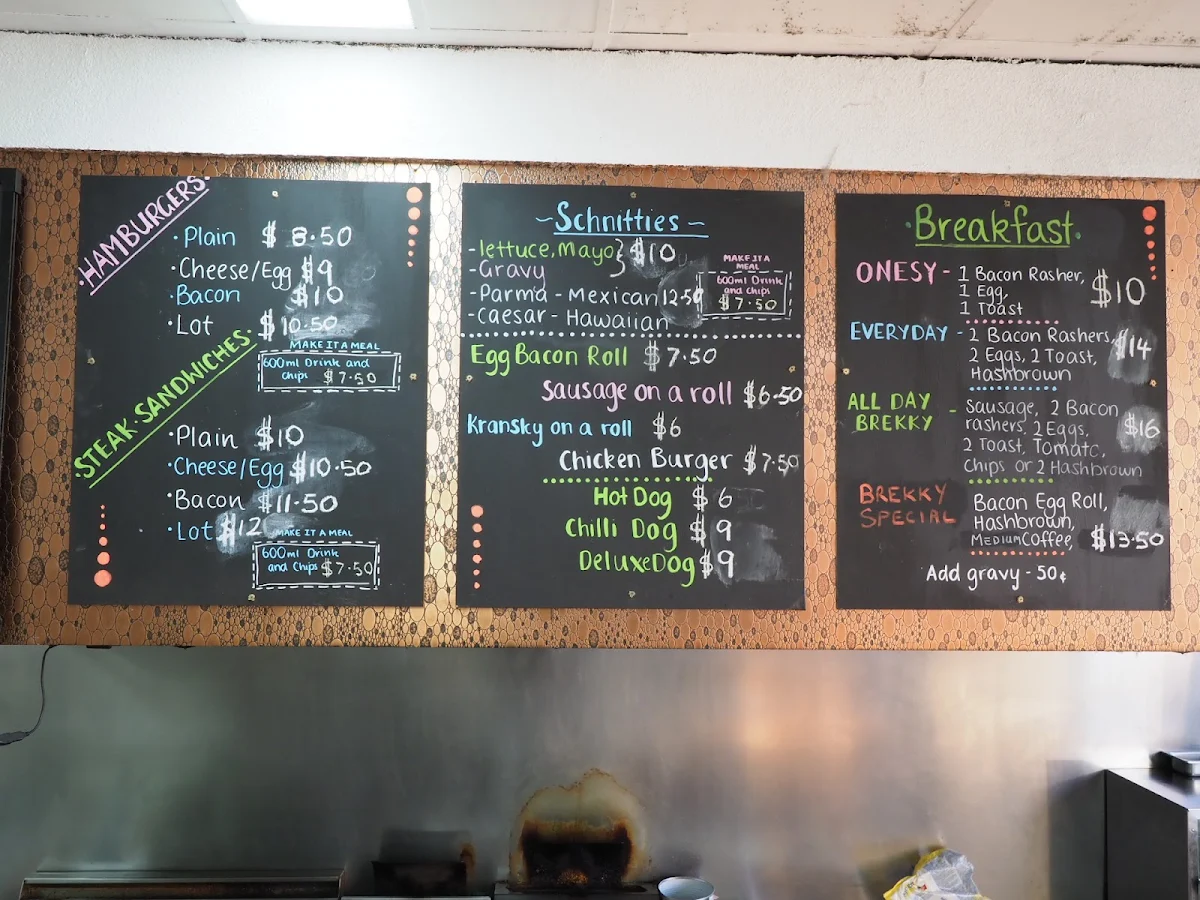 HAMBURGERS.
·Plain $8.50
·Cheese/Egg $9
·Bacon $10
·Lot $10.50
MAKE IT A MEAL
600ml Drink and
chips $7.50
·STEAK·SANDWICHES·
·Plain $10
·Cheese/Egg $10.50
·Bacon $11.50
·Lot $12
MAKE IT A MEAL
600ml Drink
and Chips $7.50
~Schnitties~
-lettuce, Mayo} $10
-Gravy
-Parma - Mexican 12.50
-caesar - Hawaiian
MAKE IT A
MEAL
600ml Drink
and chips
$7.50
Egg Bacon Roll $7.50
Sausage on a roll $6.50
Kransky on a roll $6
Chicken Burger $7.50
Hot Dog $6
Chilli Dog $9
Deluxe Dog $9
·Breakfast·
ONESY - 1 Bacon Rasher,
1 Egg, $10
1 Toast
EVERYDAY - 2 Bacon Rashers, $14
2 Eggs, 2 Toast,
Hashbrown
ALL DAY
BREKKY - Sausage, 2 Bacon
rashers, 2 Eggs, $16
2 Toast, Tomato,
Chips or 2 Hashbrown
BREKKY
SPECIAL Bacon Egg Roll,
Hashbrown,
MEDIUM Coffee, $13.50
Add gravy - 50¢